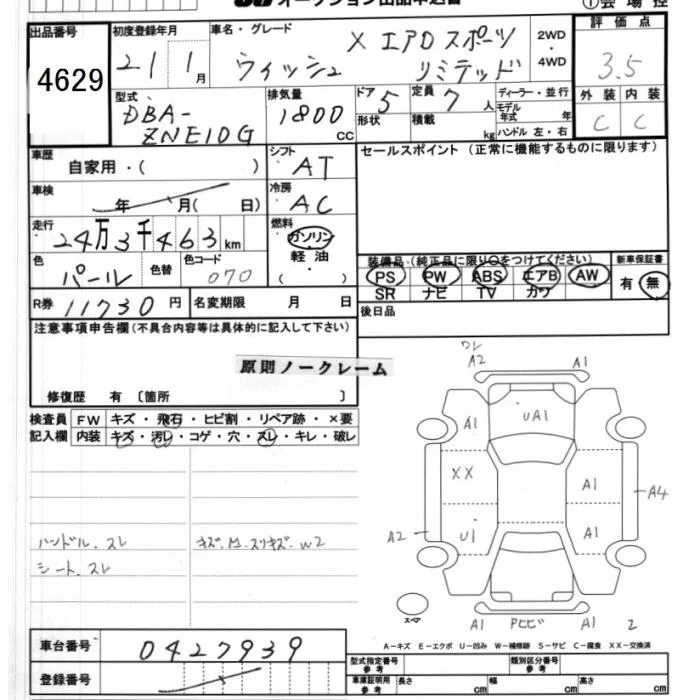 オークション出品申込書 ①会場控
出品番号 4629
初度登録年月 21 1月
車名・グレード ウィッシュ X エアロスポーツ リミテッド
2WD・4WD
評価点 3.5
外装 C 内装 C
型式 DBA-ZNE10G
排気量 1800 CC
ドア形状 5
定員 7人
積載 kg
ディーラー・並行
モデル年式 年
ハンドル 左・右
車歴 自家用・( )
シフト AT
セールスポイント (正常に機能するものに限ります)
車検 年 月( 日)
冷房 AC
走行 24万3千463km
燃料 ガソリン 軽油
装備品 (純正品に限り○をつけてください)
新車保証書
PS PW ABS エアB AW 有 無
SR ナビ TV カワ
色 パール 色替 色コード 070
後日品
R券 11730円 名変期限 月 日
注意事項申告欄(不具合内容等は具体的に記入して下さい)
原則ノークレーム
修復歴 有〔箇所 〕
検査員記入欄
FW キズ・飛石・ヒビ割・リペア跡・×要
内装 キズ・汚レ・コゲ・穴・スレ・キレ・破レ
ワレ
A2 A1
A1 UA1 A1
XX A1 A4
A2 U1 A1
ハンドル.スレ
シート.スレ
キズ.A1.スリキズ.W2
スペア
A1 Pヒビ A1 2
A-キズ E-エクボ U-凹み W-補修跡 S-サビ C-腐食 XX-交換済
車台番号 0427939
登録番号
型式指定番号 参考 類別区分番号 参考
車庫証明用 参考 長さ cm 幅 cm 高さ cm